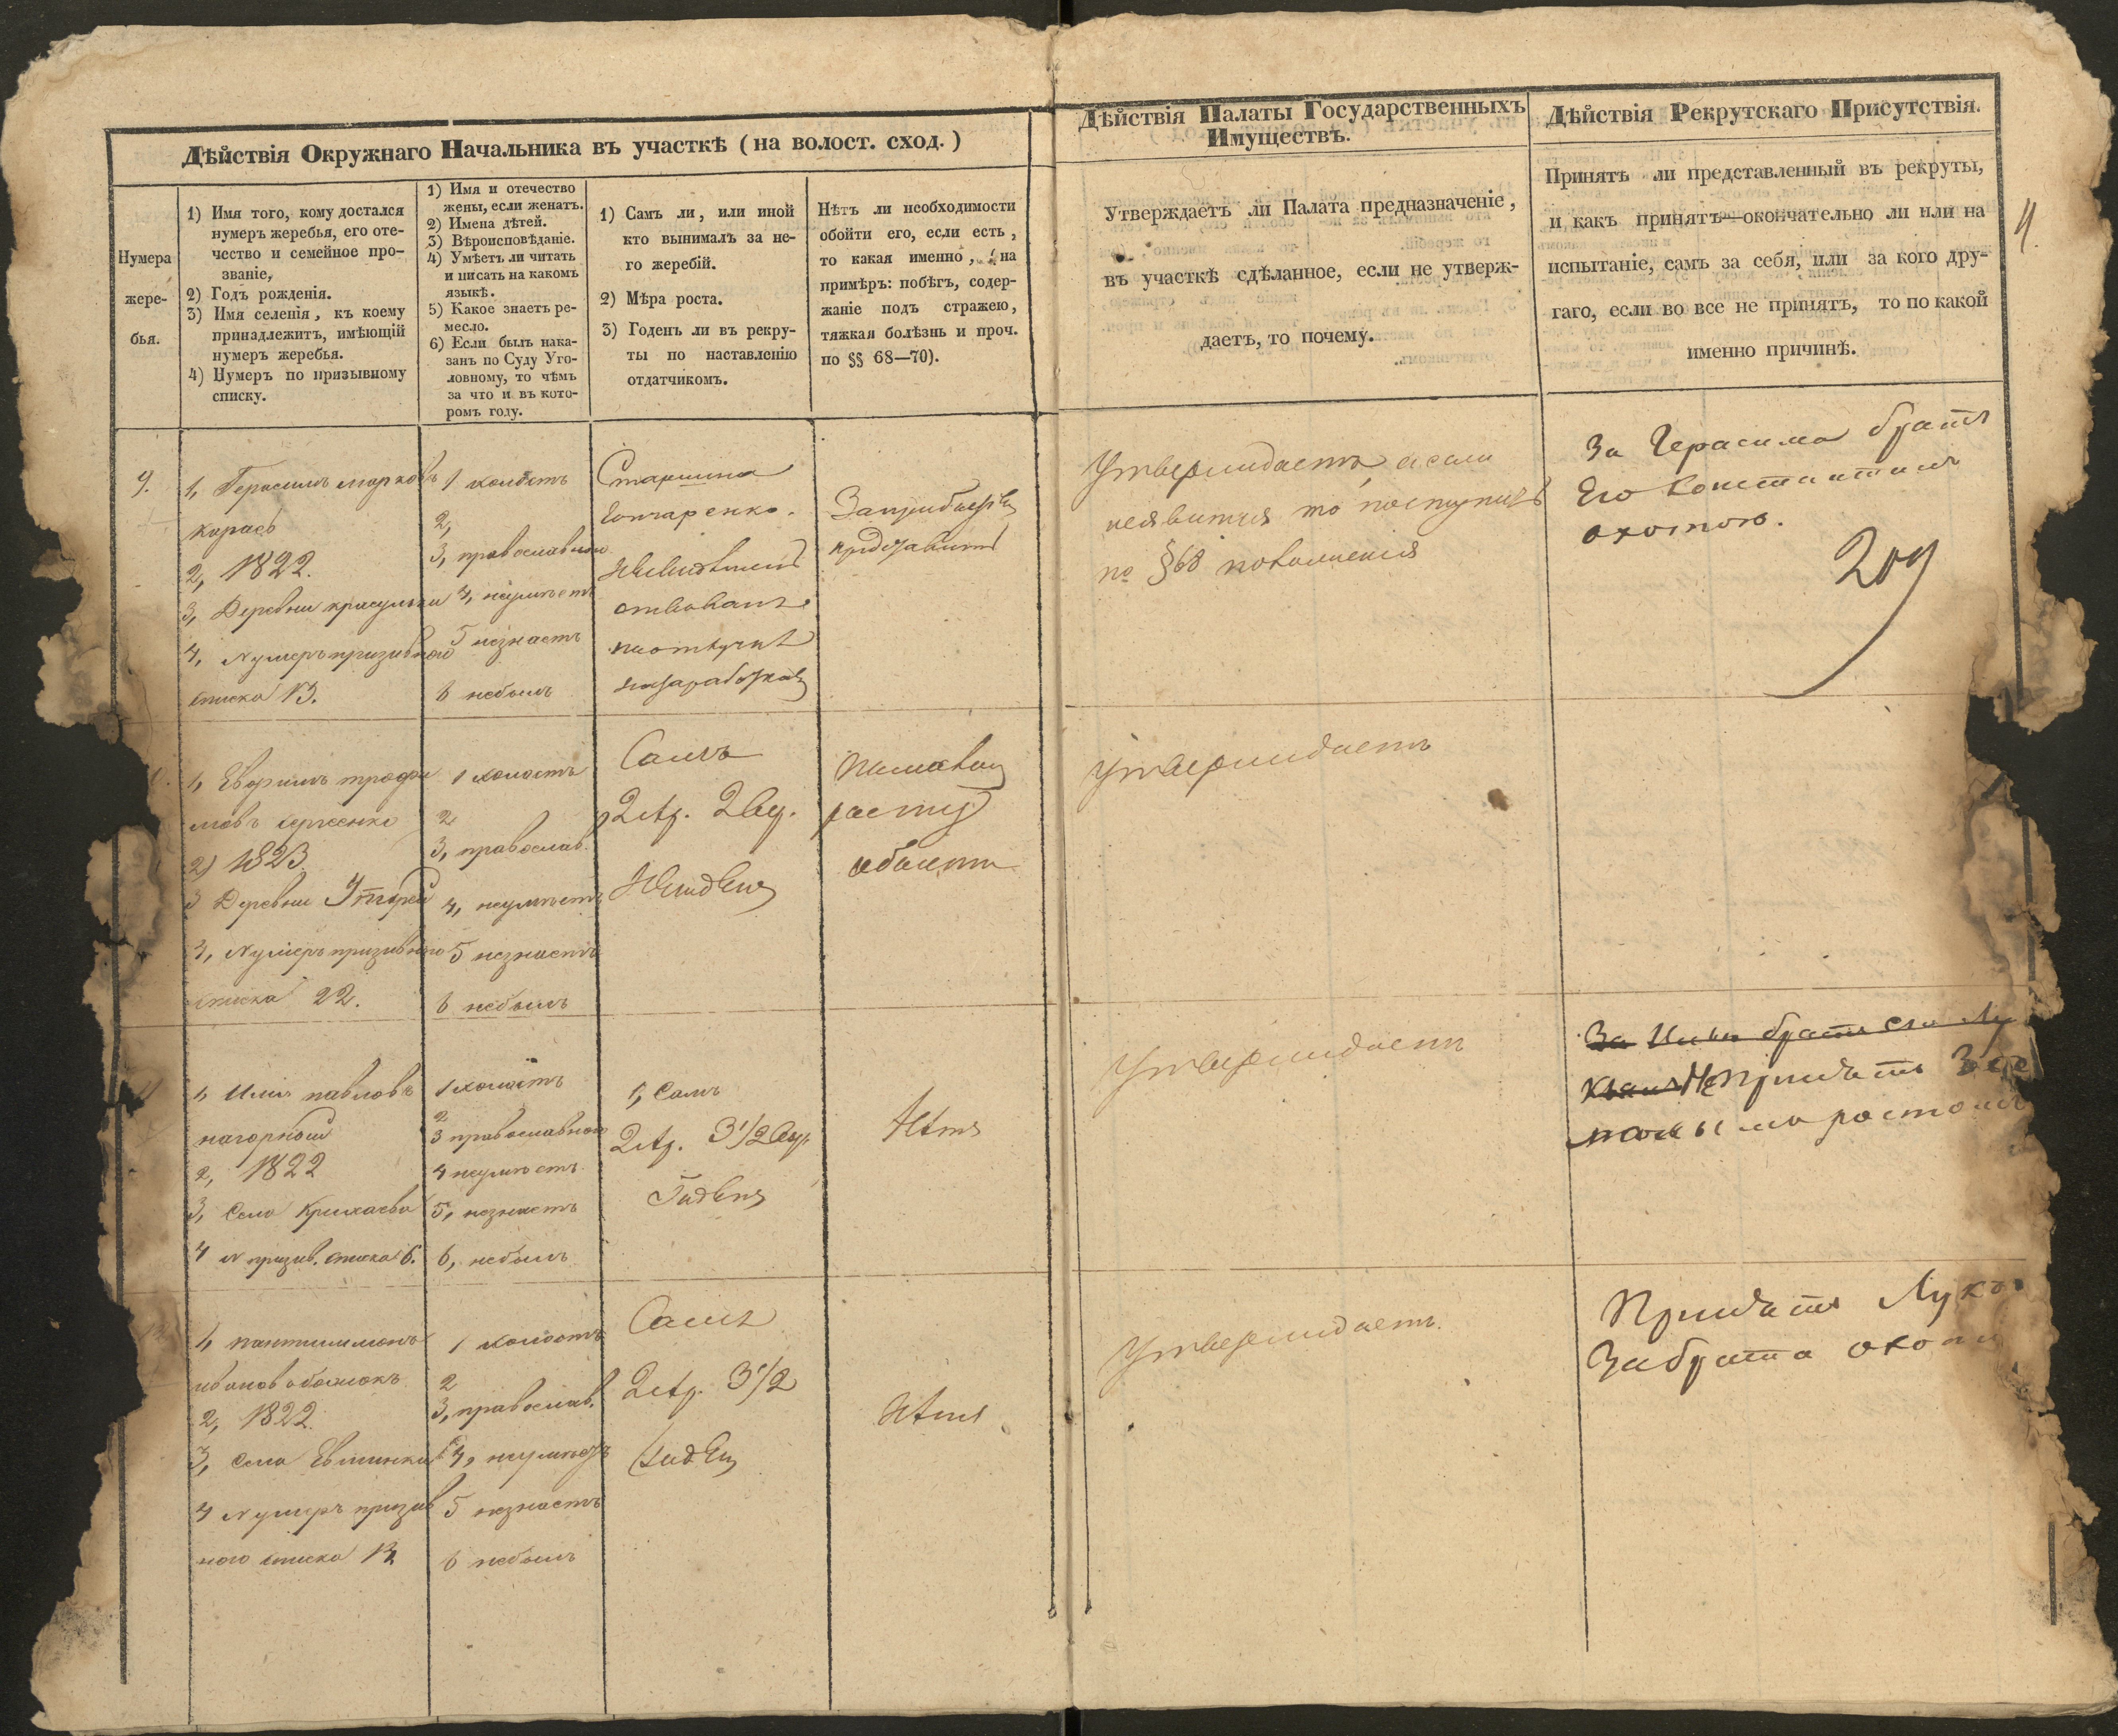 Дѣйствія Окружнаго Начальника въ участкѣ ( на волост. сход. )
Нумера
жере-
бья.
1) Имя того, кому достался
нумеръ жеребья, его оте-
чество и семейное про-
званіе,
2) Годъ рожденія.
3) Имя селенія, къ коему
принадлежитъ, имѣющій
нумеръ жеребья.
4) Нумеръ по призывному
списку.
1) Имя и отечество
жены, если женатъ.
2) Имена дѣтей.
3) Вѣроисповѣданіе.
4) Умѣетъ ли читать
и писать на какомъ
языкѣ.
5) Какое знаетъ ре-
месло.
6) Если былъ нака-
занъ по Суду Уго-
ловному, то чѣмъ
за что и въ кото-
ромъ году.
1) Самъ ли, или иной
кто вынималъ за не-
го жеребій.
2) Мѣра роста.
3) Годенъ ли въ рекру-
ты по наставленію
отдатчикомъ.
Нѣтъ ли необходимости
обойти его, если есть,
то какая именно, (на
примѣръ: побѣгъ, содер-
жаніе подъ стражею,
тяжкая болѣзнь и проч.
по §§ 68—70).
Дѣйствія Палаты Государственныхъ
Имуществъ.
Утверждаетъ ли Палата предназначеніе,
въ участкѣ сдѣланное, если не утверж-
даетъ, то почему.
Дѣйствія Рекрутскаго Присутствія.
Принятъ ли представленный въ рекруты,
и какъ принятъ—окончательно ли или на
испытаніе, самъ за себя, или за кого дру-
гаго, если во все не принятъ, то по какой
именно причинѣ.
4.
9.
1, Герасимъ марковъ
карась
2, 1822.
3, Деревни
4, Нумеръ призивного
списка 13.
1 холостъ
2,
3, православного
4, неумѣетъ
5 незнаетъ
6 небылъ
Старшина
Гончаренко.
Утверждаетъ, а если
неявится то поступить
по §68 положенія
За Герасима братъ
Его Константинъ
охотою.
209
1, Евфимъ трофи
мовъ сергеенко
2) 1823.
3 Деревни
4, Нумеръ призивного
списка 22.
1 холостъ
2
3, православ.
4, неумѣетъ
5 незнаетъ
6 небылъ
Самъ
2 ар. 2 вер.
обойти
Утверждаетъ
1, Илья павловъ
нагорный
2, 1822
3, Села Крихаева
4 N призив. списка 6.
1 холостъ
2
3 православного
4 неумѣетъ
5, незнаетъ
6, небылъ
1, Самъ
2 ар. 3 1/2 вер.
Годенъ
Нѣтъ
Утверждаетъ
За Илью братъ его Лу
Непринятъ
ростомъ
1, пантилимонъ
ивановъ
2, 1822.
3, Села Евминки
4 Нумеръ призив
ного списка
1 холостъ
2
3, православ.
4, неумѣетъ
5 незнаетъ
6 небылъ
Самъ
2 ар. 3 1/2
Годенъ
Нѣтъ
Утверждаетъ.
Принятъ Лука
Забрата охото